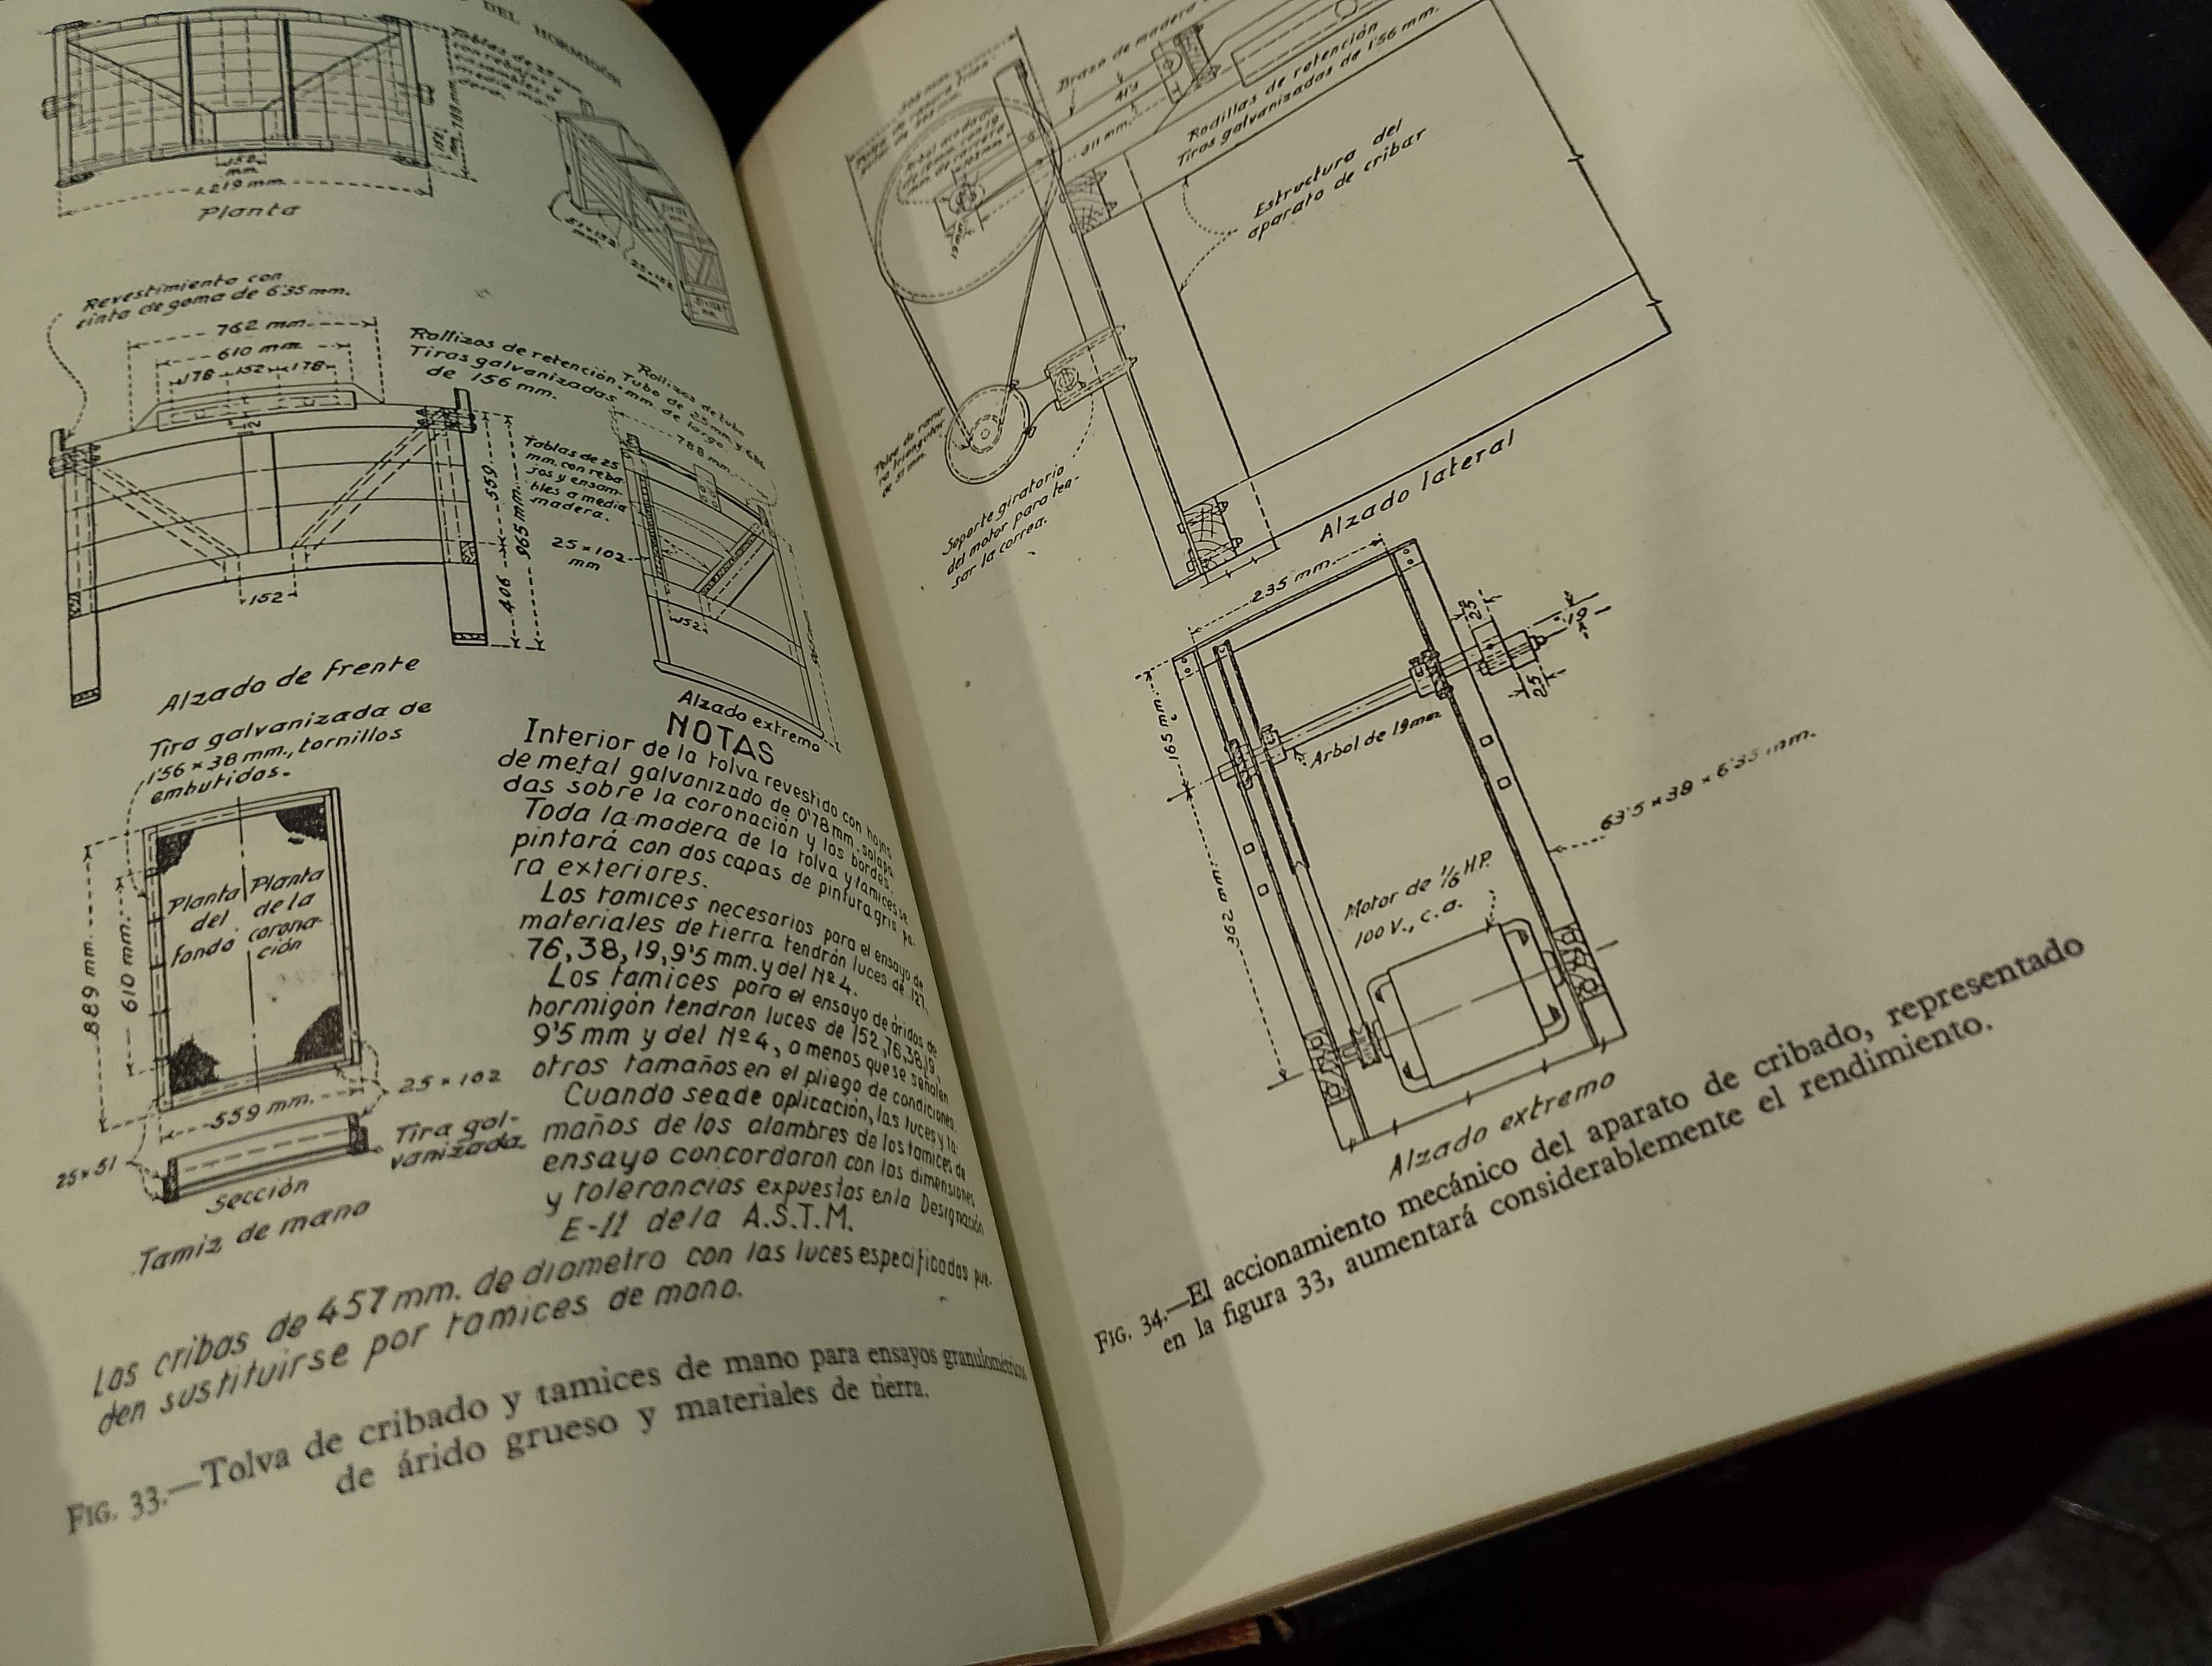 DEL HORMIGÓN
Tablas de 25 mm.
con rebajos y
152
mm.
1.219 mm.
Planta
51×152
mm.
25×152
mm.
Revestimiento con
cinta de goma de 6'35 mm.
762 mm.
610 mm
178 152 178
Rollizos de retención.
Tiras galvanizadas
de 156 mm.
Rollizos de tubo
Tubo de 25 mm y 686
mm. de largo
788 mm.
Tablas de 25
mm. con reba-
jos y ensam-
bles a media
madera.
559
965 mm.
406
25×102
mm
152
152
Alzado de frente
Alzado extremo
Tira galvanizada de
1'56 × 38 mm., tornillos
embutidos.
889 mm.
610 mm.
Planta
del
fondo
Planta
de la
corona-
ción
559 mm.
25 × 102
25×51
Tira gal-
vanizada.
Sección
Tamiz de mano
NOTAS
Interior de la tolva revestido con hojas
de metal galvanizado de 0'78 mm. solapa-
das sobre la coronación y los bordes.
Toda la madera de la tolva y tamices se
pintará con dos capas de pintura gris pa-
ra exteriores.
Los tamices necesarios para el ensayo de
materiales de tierra tendrán luces de 127,
76, 38, 19, 9'5 mm. y del Nº 4.
Los tamices para el ensayo de áridos de
hormigón tendran luces de 152, 76, 38, 19,
9'5 mm y del Nº 4, a menos que se señalen
otros tamaños en el pliego de condiciones.
Cuando sea de aplicación, las luces y ta-
maños de los alambres de los tamices de
ensayo concordaran con las dimensiones
y tolerancias expuestas en la Designación
E-11 de la A.S.T.M.
Las cribas de 457 mm. de diametro con las luces especificadas pue-
den sustituirse por tamices de mano.
FIG. 33.—Tolva de cribado y tamices de mano para ensayos granulométricos
de árido grueso y materiales de tierra.
Brazo de madera
811 mm.
Rodillas de retención
Tiras galvanizadas de 1'56 mm.
Estructura del
aparato de cribar
Polea de ranu-
ra triangular
de 51 mm.
Soporte giratorio
del motor para ten-
sar la correa.
Alzado lateral
235 mm.
25
19
25
165 mm.
Arbol de 19 mm
362 mm.
63'5 × 38 × 6'35 mm.
Motor de 1/6 H.P.
100 V., c.a.
Alzado extremo
FIG. 34.—El accionamiento mecánico del aparato de cribado, representado
en la figura 33, aumentará considerablemente el rendimiento.